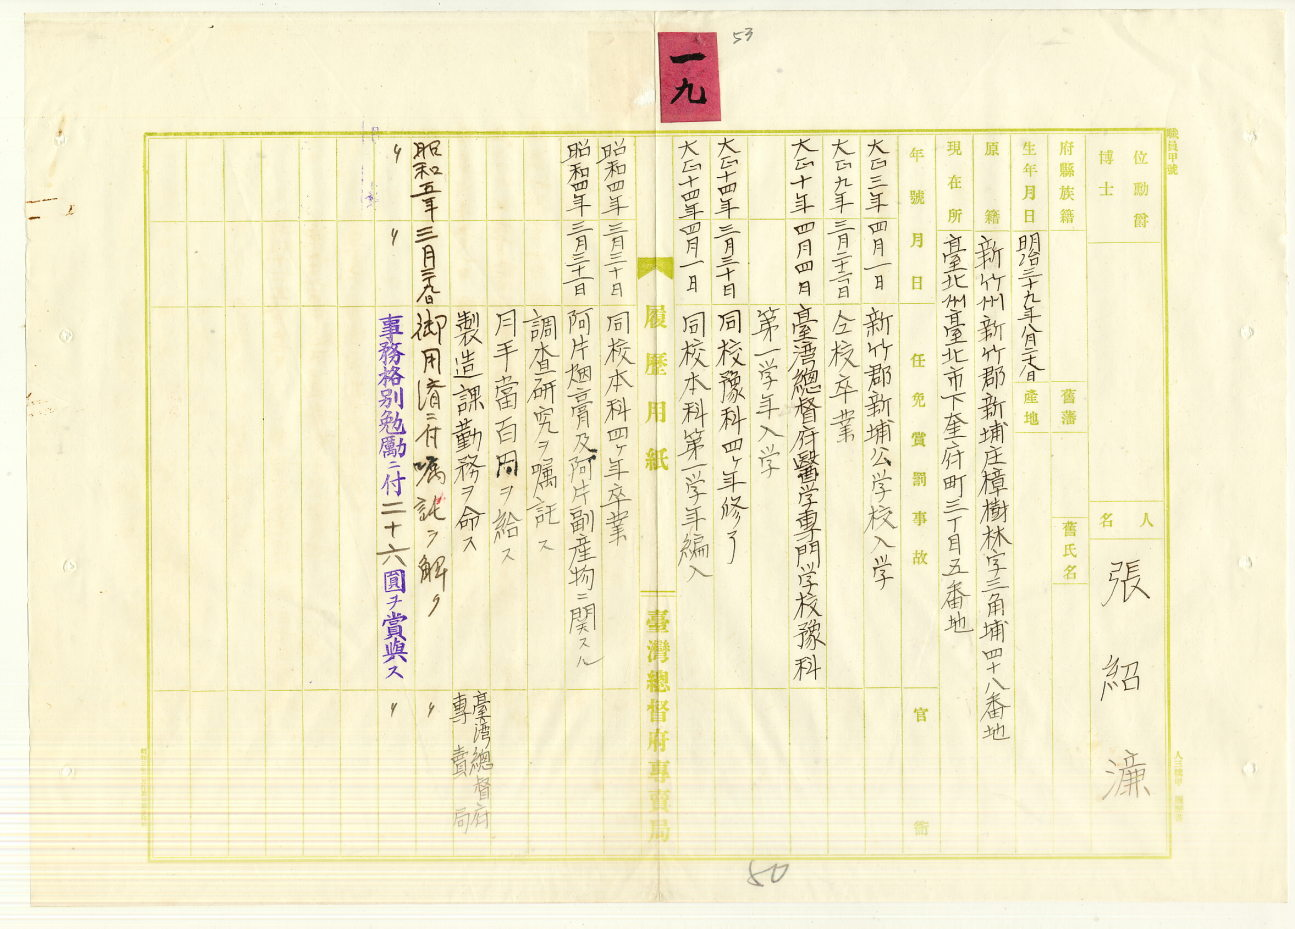 53
一九
職員甲號
位勳爵
博士
人名
張紹濂
府縣族籍
舊藩
舊氏名
生年月日
明治三十九年八月二十八日
產地
原籍
新竹州新竹郡新埔庄樟樹林字三角埔四十八番地
現在所
臺北州臺北市下奎府町三丁目五番地
年號月日
任免賞罰事故
官衙
大正三年四月一日
新竹郡新埔公学校入学
大正九年三月二十二日
仝校卒業
大正十年四月四日
臺湾總督府醫学專門学校豫科
第一学年入学
大正十四年三月三十日
同校豫科四ヶ年修了
大正十四年四月一日
同校本科第一学年編入
履歷用紙
臺灣總督府專賣局
昭和四年三月三十日
同校本科四ヶ年卒業
昭和四年三月三十一日
阿片烟膏及阿片副産物ニ関スル
調査研究ヲ嘱託ス
月手當百円ヲ給ス
製造課勤務ヲ命ス
臺湾總督府
專賣局
昭和五年三月二九日
御用済ニ付嘱託ヲ解ク
〃
〃
〃
事務格別勉勵ニ付二十六圓ヲ賞與ス
〃
50